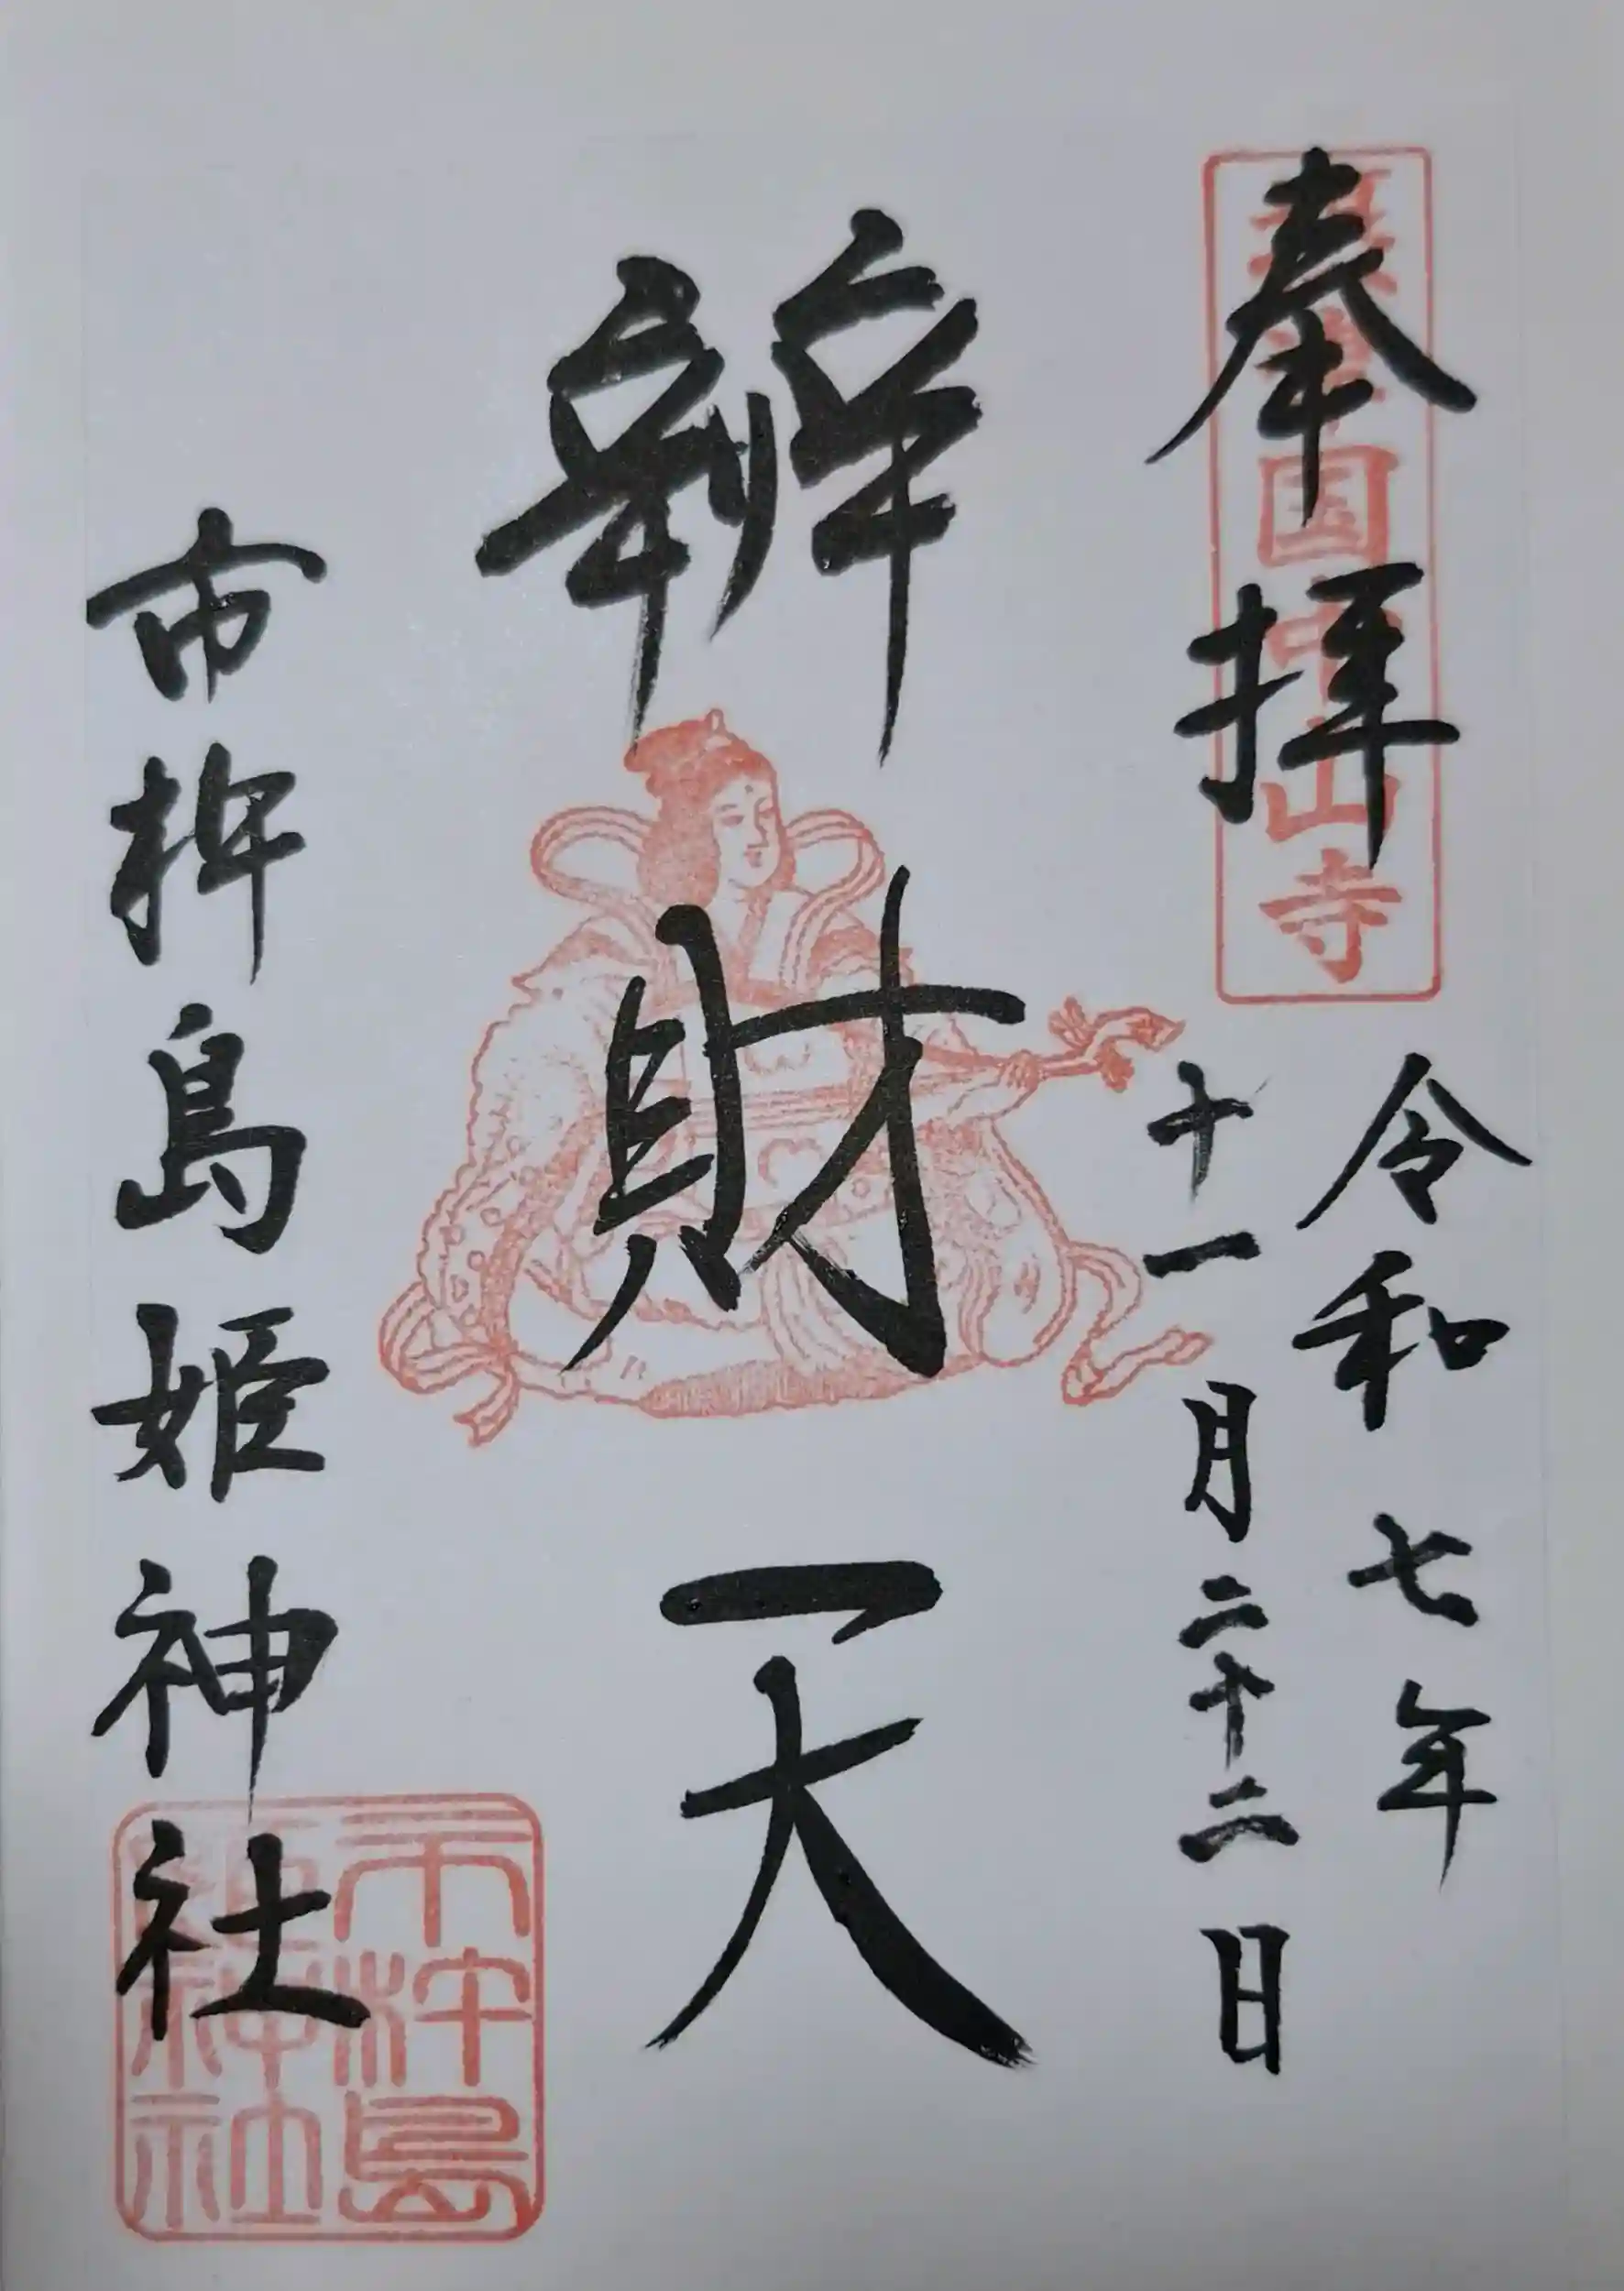 奉拝
国 山寺
令和七年
十一月二十二日
辨財天
市杵島姫神社
市杵島
姫神社